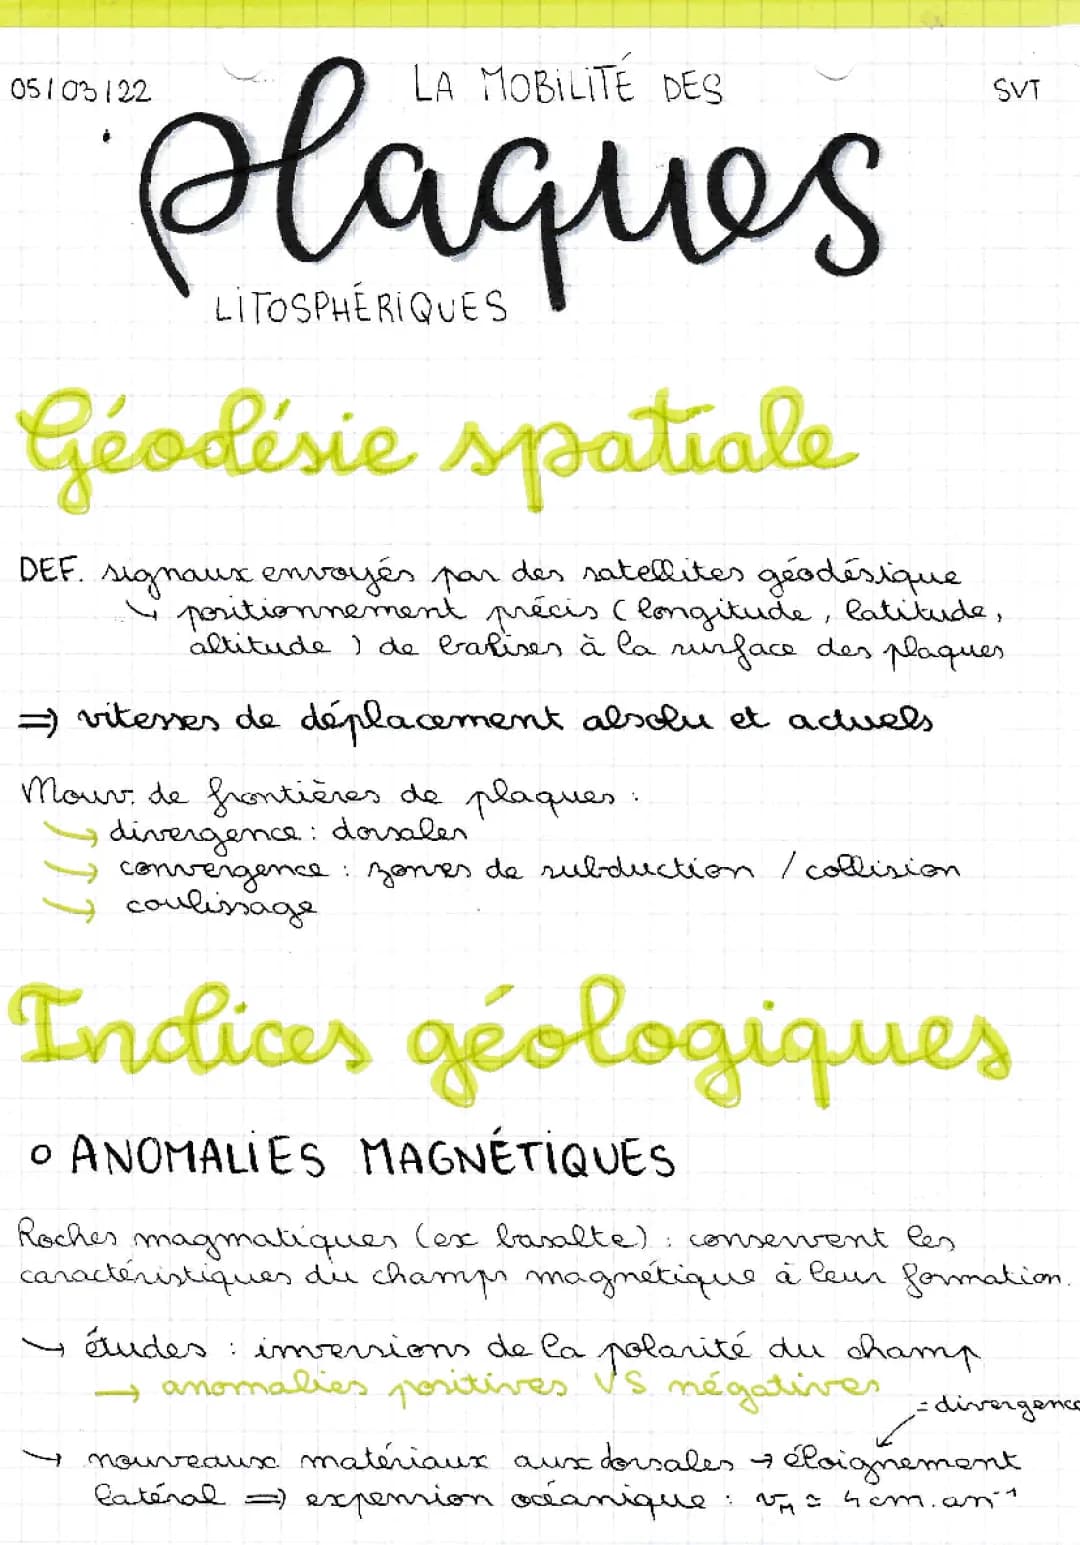 05/03/22
LA MOBILITÉ DES
SVT
plaques
LITOSPHÉRIQUES
Géodésie spatiale
DEF. signaux envoyés par des satellites géodésique
↳ positionnement précis (longitude, latitude,
altitude) de balises à la surface des plaques
=> vitesses de déplacement absolu et actuels
Mouv. de frontières de plaques :
↳ divergence : dorsales
↳ convergence : zones de subduction / collision
↳ coulissage
Indices géologiques
o ANOMALIES MAGNÉTIQUES
Roches magmatiques (ex basalte) : conservent les
caractéristiques du champs magnétique à leur formation.
↳ études : inversions de la polarité du champ
→ anomalies positives VS négatives
= divergence
↳ nouveaux matériaux aux dorsales → éloignement
latéral => expension océanique : v_M ≃ 4 cm.an⁻¹